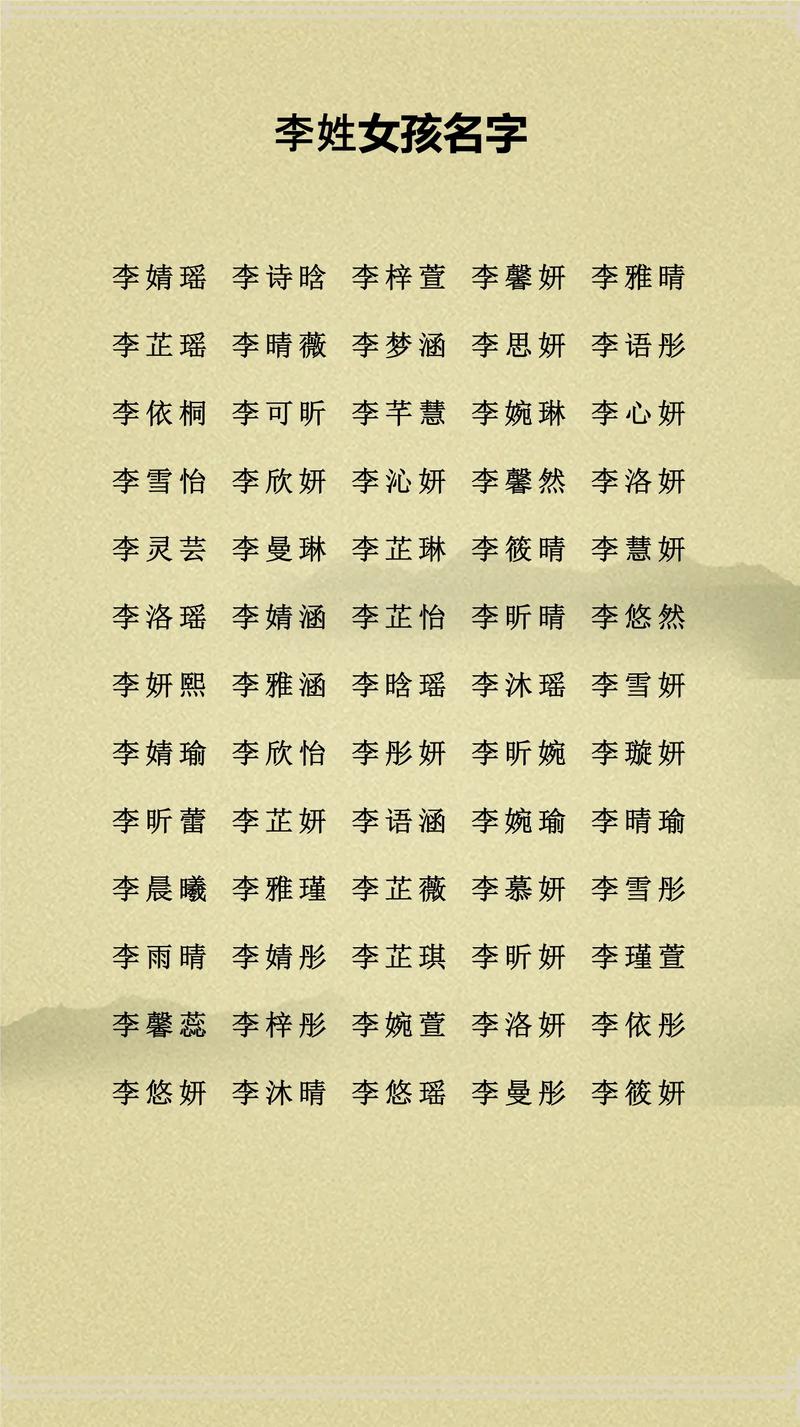 李姓女孩名字
李婧瑶 李诗晗 李梓萱 李馨妍 李雅晴
李芷瑶 李晴薇 李梦涵 李思妍 李语彤
李依桐 李可昕 李芊慧 李婉琳 李心妍
李雪怡 李欣妍 李沁妍 李馨然 李洛妍
李灵芸 李曼琳 李芷琳 李筱晴 李慧妍
李洛瑶 李婧涵 李芷怡 李昕晴 李悠然
李妍熙 李雅涵 李晗瑶 李沐瑶 李雪妍
李婧瑜 李欣怡 李彤妍 李昕婉 李璇妍
李昕蕾 李芷妍 李语涵 李婉瑜 李晴瑜
李晨曦 李雅瑾 李芷薇 李慕妍 李雪彤
李雨晴 李婧彤 李芷琪 李昕妍 李瑾萱
李馨蕊 李梓彤 李婉萱 李洛妍 李依彤
李悠妍 李沐晴 李悠瑶 李曼彤 李筱妍